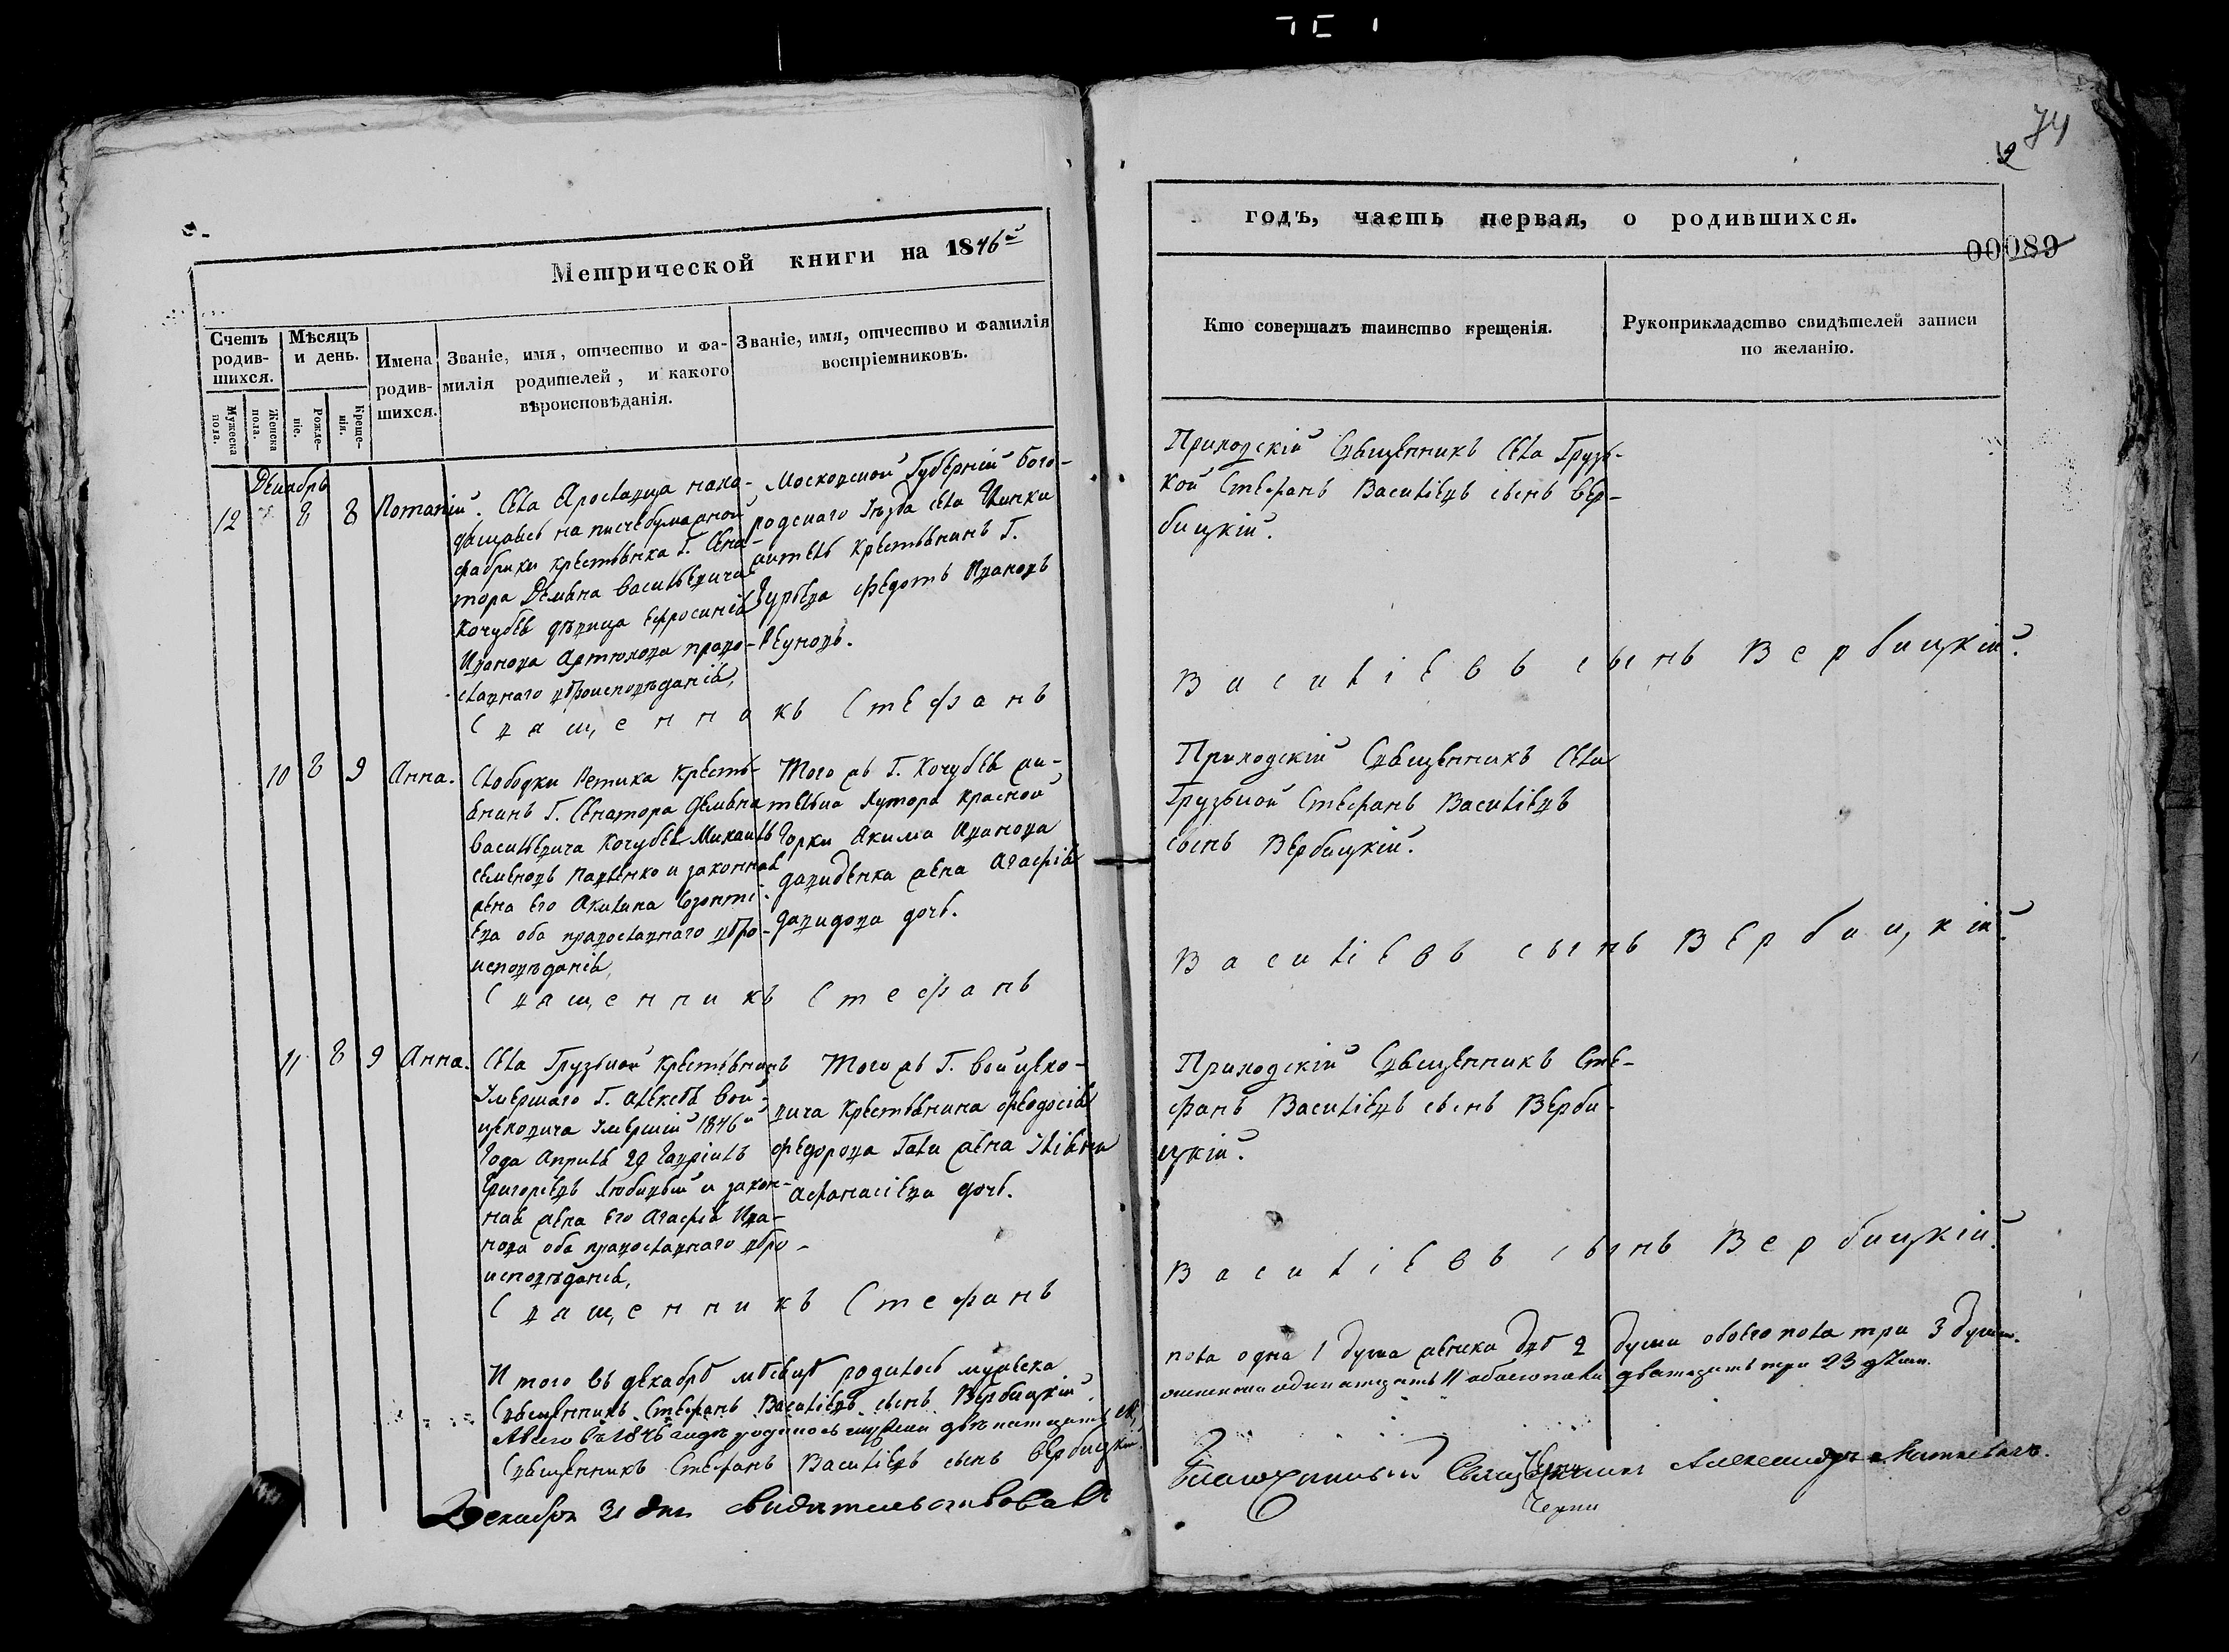 74
9
Метрической книги на 1846й
годъ, часть первая, о родившихся.
00089
Счетъ родив-шихся.
Мужеска пола.
Женска пола.
Мѣсяцъ и день.
Рожде-ніе.
Креще-нія.
Имена родив-шихся.
Званіе, имя, отчество и фа-
милія родителей, и какого
вѣроисповѣданія.
Званіе, имя, отчество и фамилія
воспріемниковъ.
Кто совершалъ таинство крещенія.
Рукоприкладство свидѣтелей записи
по желанію.
Декабрь
12 8 8 Потапій.
Села Ярославца нахо-
дящаясь на писчебумажной
фабрики крестьянка Г. Сена-
тора Демьяна Васильевича
Кочубея дѣвица Ефросинія
Иванова Артюхова право-
славнаго вѣроисповѣданія,
Московской Губерніи Бого-
родскаго уѣзда села
житель крестьянинъ Г.
Федотъ Ивановъ
Приходскій Священникъ Села Грузь-
кой Стефанъ Василіевъ сынъ Вер-
бицкій.
Священникъ Стефанъ
Василіевъ сынъ Вербицкій.
10 8 9 Анна.
Слободки Ретика Кресть-
янинъ Г. Сенатора Демьяна
Васильевича Кочубея Михаилъ
Семеновъ Павленко и законная
жена его Акилина
оба православнаго вѣро-
исповѣданія,
Того жъ Г. Кочубея жи-
тельна Хутора Красной
Горки Якима Иванова
Давиденка жена Агафія
Давидова дочь.
Приходскій Священникъ Села
Грузькой Стефанъ Василіевъ
сынъ Вербицкій.
Священникъ Стефанъ
Василіевъ сынъ Вербицкій.
11 8 9 Анна.
Села Грузькой Крестьянинъ
Умершаго Г. Алексѣя Вой-
цеховича умершій 1846го
Года Апрѣля 29 Гавріилъ
Григоріевъ Любивый и закон-
ная жена его Агафія Ива-
нова оба православнаго вѣро-
исповѣданія,
Того жъ Г. Войцехо-
вича Крестьянина Феодосія
Федорова Гали жена Уліяна
Афанасіева дочь.
Приходскій Священникъ Сте-
фанъ Василіевъ сынъ Верби-
цкій.
Священникъ Стефанъ
Василіевъ сынъ Вербицкій.
Итого въ декабрѣ мѣсяцѣ родилось мужеска
пола одна 1 душа женска двѣ 2 души обоего пола три 3 души.
Священникъ Стефанъ Василіевъ сынъ Вербицкій.
А всего въ 1846 годѣ родилось мужеска двенатцать 12,
женска одинатцать 11 обоего пола дватцать три 23 души.
Священникъ Стефанъ Василіевъ сынъ Вербицкій.
Декабря 31 дня свидѣтельствовалъ
Благочинный Священникъ Александръ